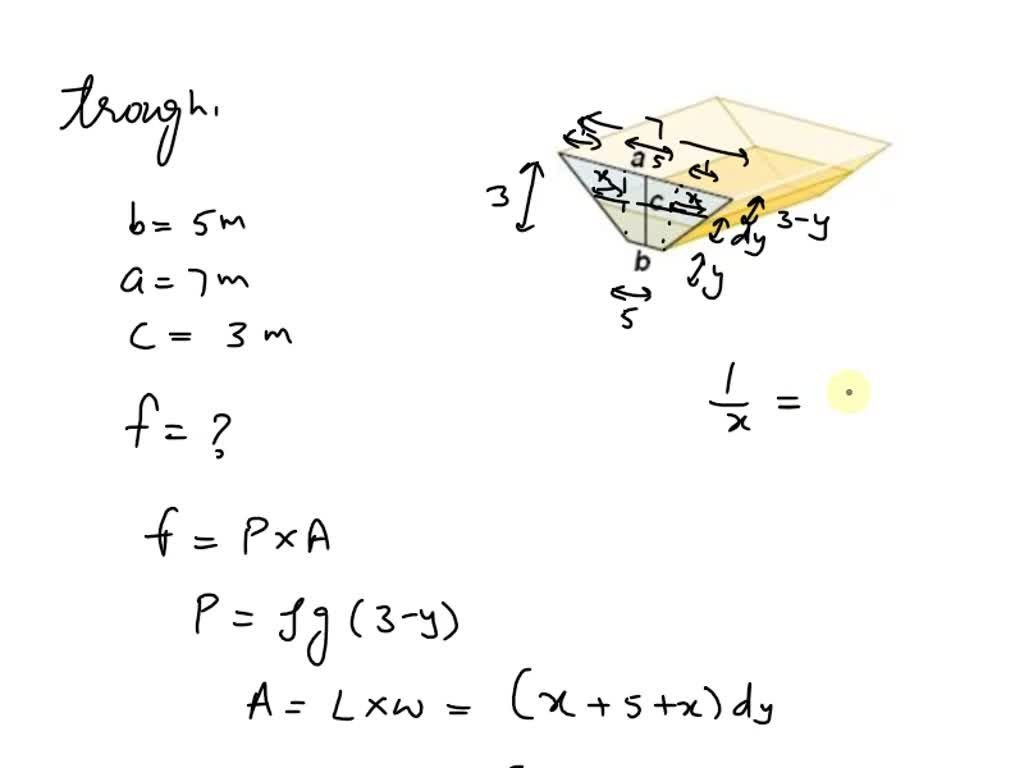 trough.
b = 5 m
a = 7 m
c = 3 m
f = ?
f = P × A
P = ρg (3-y)
A = L × w = (x + 5 + x) dy
7
1
a 5
1
3
x
c
x
dy
3-y
b
y
5
1/x =